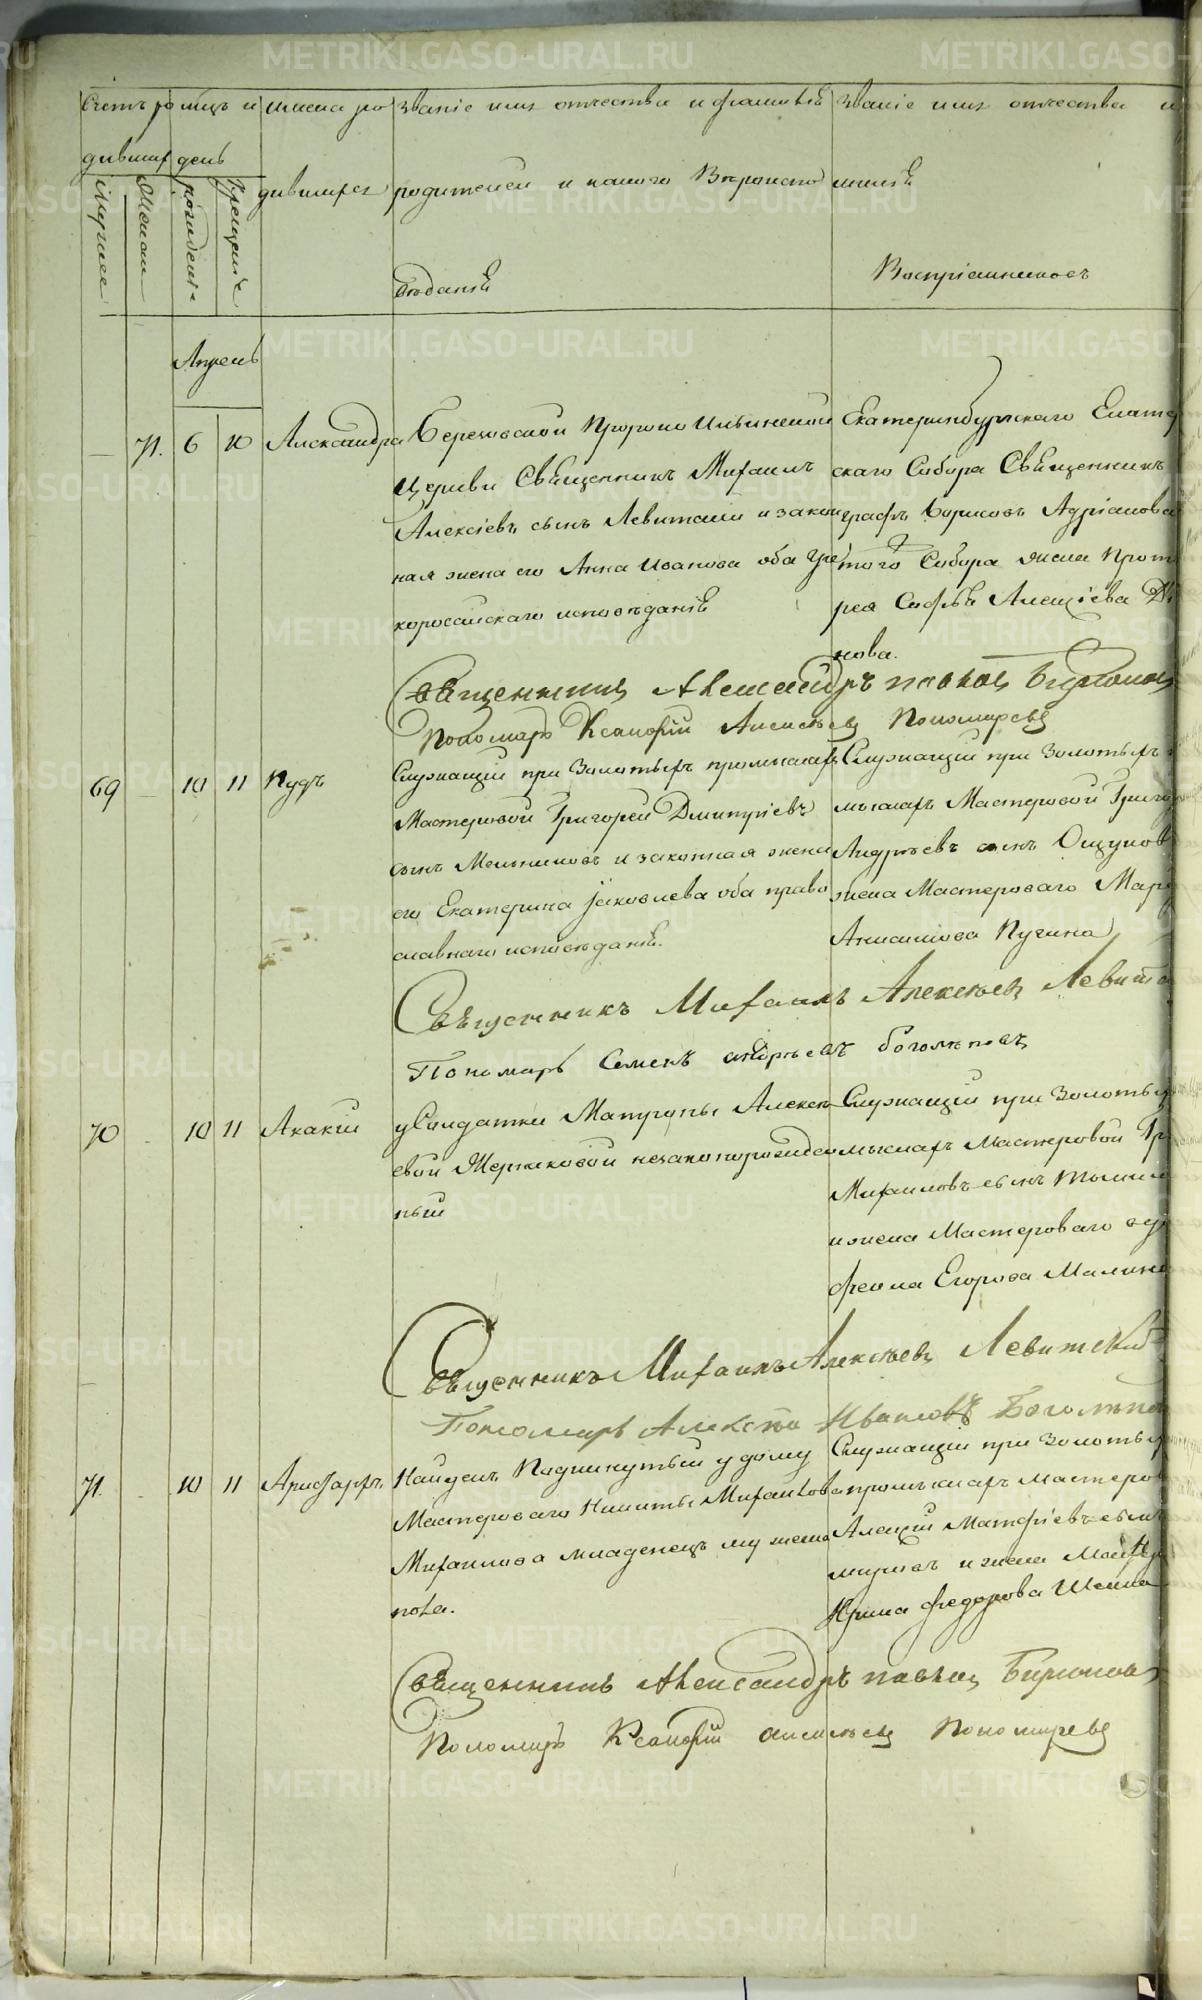 Счетъ ро
дившихся
мцъ и
день
имена ро
дившихся
Званіе имя отчество и фамилія
родителей и какого Вѣроиспо
вѣданія
Званіе имя отчество и
милія
Воспріемниковъ
мужеска
женска
рожденія
крещенія
Апрель
71. 6 10 Александра
Береховской Пророко Ильинской
Церкви Священникъ Михаилъ
Алексіевъ сынъ Левитскій и закон
ная жена его Анна Иванова оба Гре
короссійскаго исповѣданія
Екатеринбургскаго Екате
скаго Собора Священникъ
графъ Борисовъ Адріановъ
того Собора жена Прот
рея Софья Алексіева
нова.
Священникъ Александръ павловъ Бирюковъ
Пономарь Ксенофій Алексѣевъ Пономаревъ
69 10 11 Пудъ
Служащій при Золотыхъ промыслахъ
Мастеровой Григорей Дмитріевъ
сынъ Мельниковъ и законная жена
его Екатерина Іаковлева оба право
славнаго исповѣданія.
Служащій при Золотыхъ
мыслахъ Мастеровой Григо
Андреевъ сынъ Ощупов
жена Мастероваго Мар
Анисимова Пугина
Священникъ Михаилъ Алексѣевъ Левитс
Пономарь Семенъ андреевъ боголеповъ
70 10 11 Акакій
у Солдатки Матроны Алексе
евой Жерняковой незаконорожден
ный
Служащій при Золотых
мыслахъ Мастеровой Гр
Михаиловъ сынъ
и жена Мастероваго
фенна Егорова Малино
Священникъ Михаилъ Алексѣевъ Левитский
Пономарь Алексѣй Ивановъ Боголепов
71. 10 11 Аристархъ.
Найденъ Подкинутый у дому
Мастероваго Никиты Михаилова
Михаилова младенецъ мужеска
пола.
Служащій при Золоты
промыслахъ Мастеров
Алексій Матфіевъ сынъ
и жена Мастер
Ирина Федорова Шеина
Священникъ Александръ павловъ Бирюковъ
Пономарь Ксенофій алексѣевъ Пономаревъ
METRIKI.GASO-URAL.RU